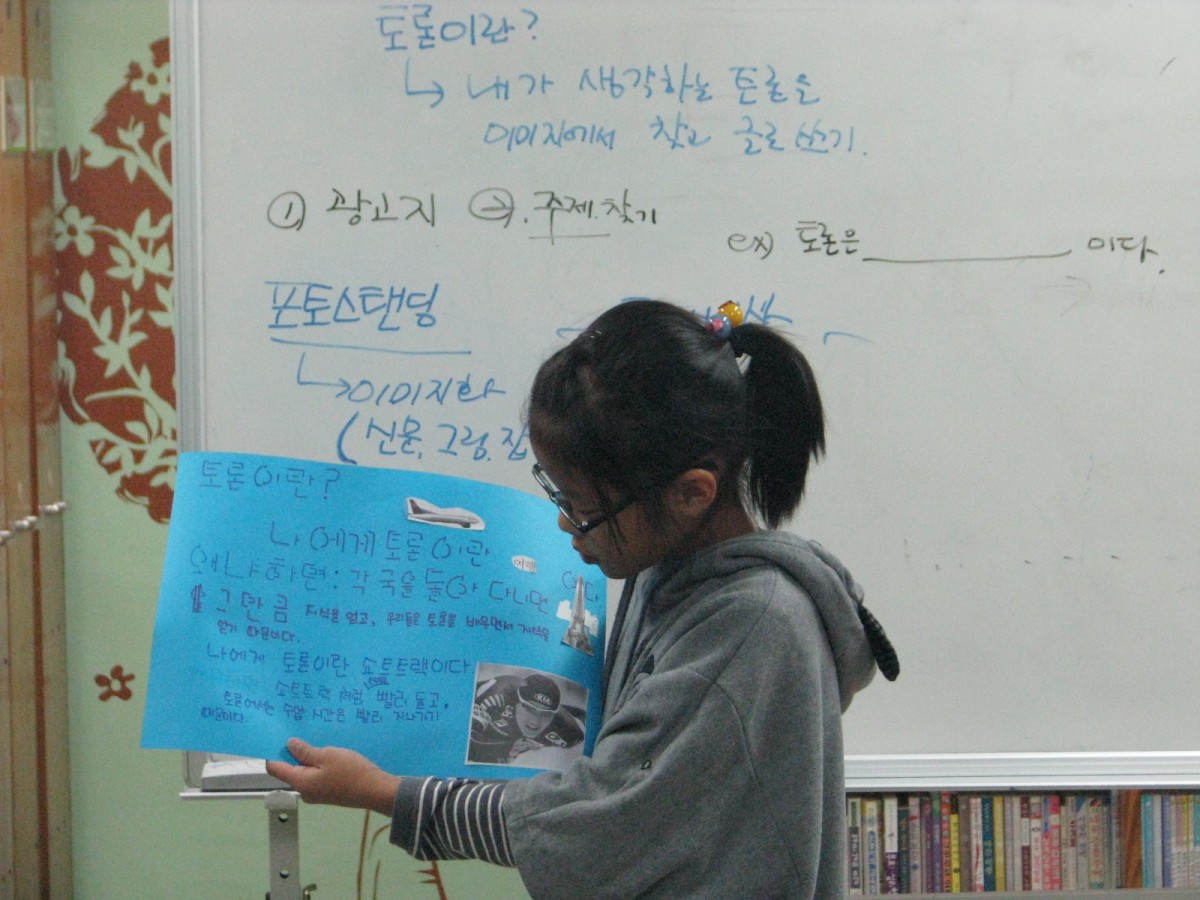 토론이란?
↳ 내가 생각하는 토론을
이미지에서 찾고 글로 쓰기.
① 광고지 → 주제.찾기
ex) 토론은 __________ 이다.
포토스탠딩
↳ 이미지화
(신문, 그림, 잡
토론이란?
나에게 토론이란 여행
왜냐하면: 각국을 돌아다니면
그만큼 지식을 얻고, 우리들은 토론을 배우면서 지식을
얻기 때문이다.
나에게 토론이란 쇼트트랙이다
쇼트트랙처럼 빨리 돌고,
토론에서는 수업 시간은 빨리 지나가기
때문이다.